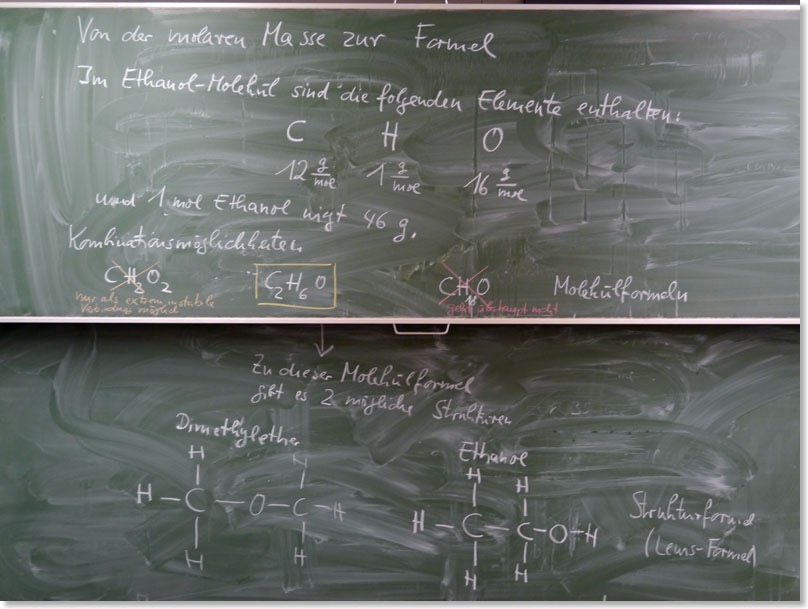 Von der molaren Masse zur Formel
Im Ethanol-Molekül sind die folgenden Elemente enthalten:
C H O
12 g/mol 1 g/mol 16 g/mol
und 1 mol Ethanol wigt 46 g.
Kombinationsmöglichkeiten
C H₂ O₂ C₂H₆O CH₁₈O Molekülformeln
nur als extrem instabile
Verbindung möglich
geht überhaupt nicht
Zu dieser Molekülformel
gibt es 2 mögliche Strukturen
Dimethylether Ethanol
H H H H
H – C – O – C – H H – C – C – O – H Strukturformel
(Lewis-Formel)
H H H H